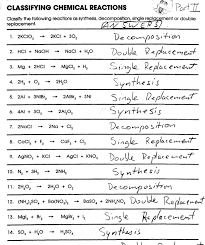 Part II
CLASSIFYING CHEMICAL REACTIONS
Classify the following reactions as synthesis, decomposition, single replacement or double
replacement.
ANSWERS
1. 2KClO₃ → 2KCl + 3O₂ Decomposition
2. HCl + NaOH → NaCl + H₂O Double Replacement
3. Mg + 2HCl → MgCl₂ + H₂ Single Replacement
4. 2H₂ + O₂ → 2H₂O Synthesis
5. 2Al + 3NiBr₂ → 2AlBr₃ + 3Ni Single Replacement
6. 4Al + 3O₂ → 2Al₂O₃ Synthesis
7. 2NaCl → 2Na + Cl₂ Decomposition
8. CaCl₂ + F₂ → CaF₂ + Cl₂ Single Replacement
9. AgNO₃ + KCl → AgCl + KNO₃ Double Replacement
10. N₂ + 3H₂ → 2NH₃ Synthesis
11. 2H₂O₂ → 2H₂O + O₂ Decomposition
12. (NH₄)₂SO₄ + Ba(NO₃)₂ → BaSO₄ + 2NH₄NO₃ Double Replacement
13. MgI₂ + Br₂ → MgBr₂ + I₂ Single Replacement
14. SO₃ + H₂O → H₂SO₄ Synthesis